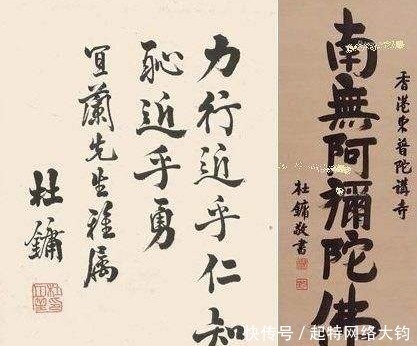 力行近乎仁知
恥近乎勇
宜蘭先生雅属
杜鏞
香港東普陀講寺
南無阿彌陀佛
杜鏞敬書
快传号 / 起特网络大钧